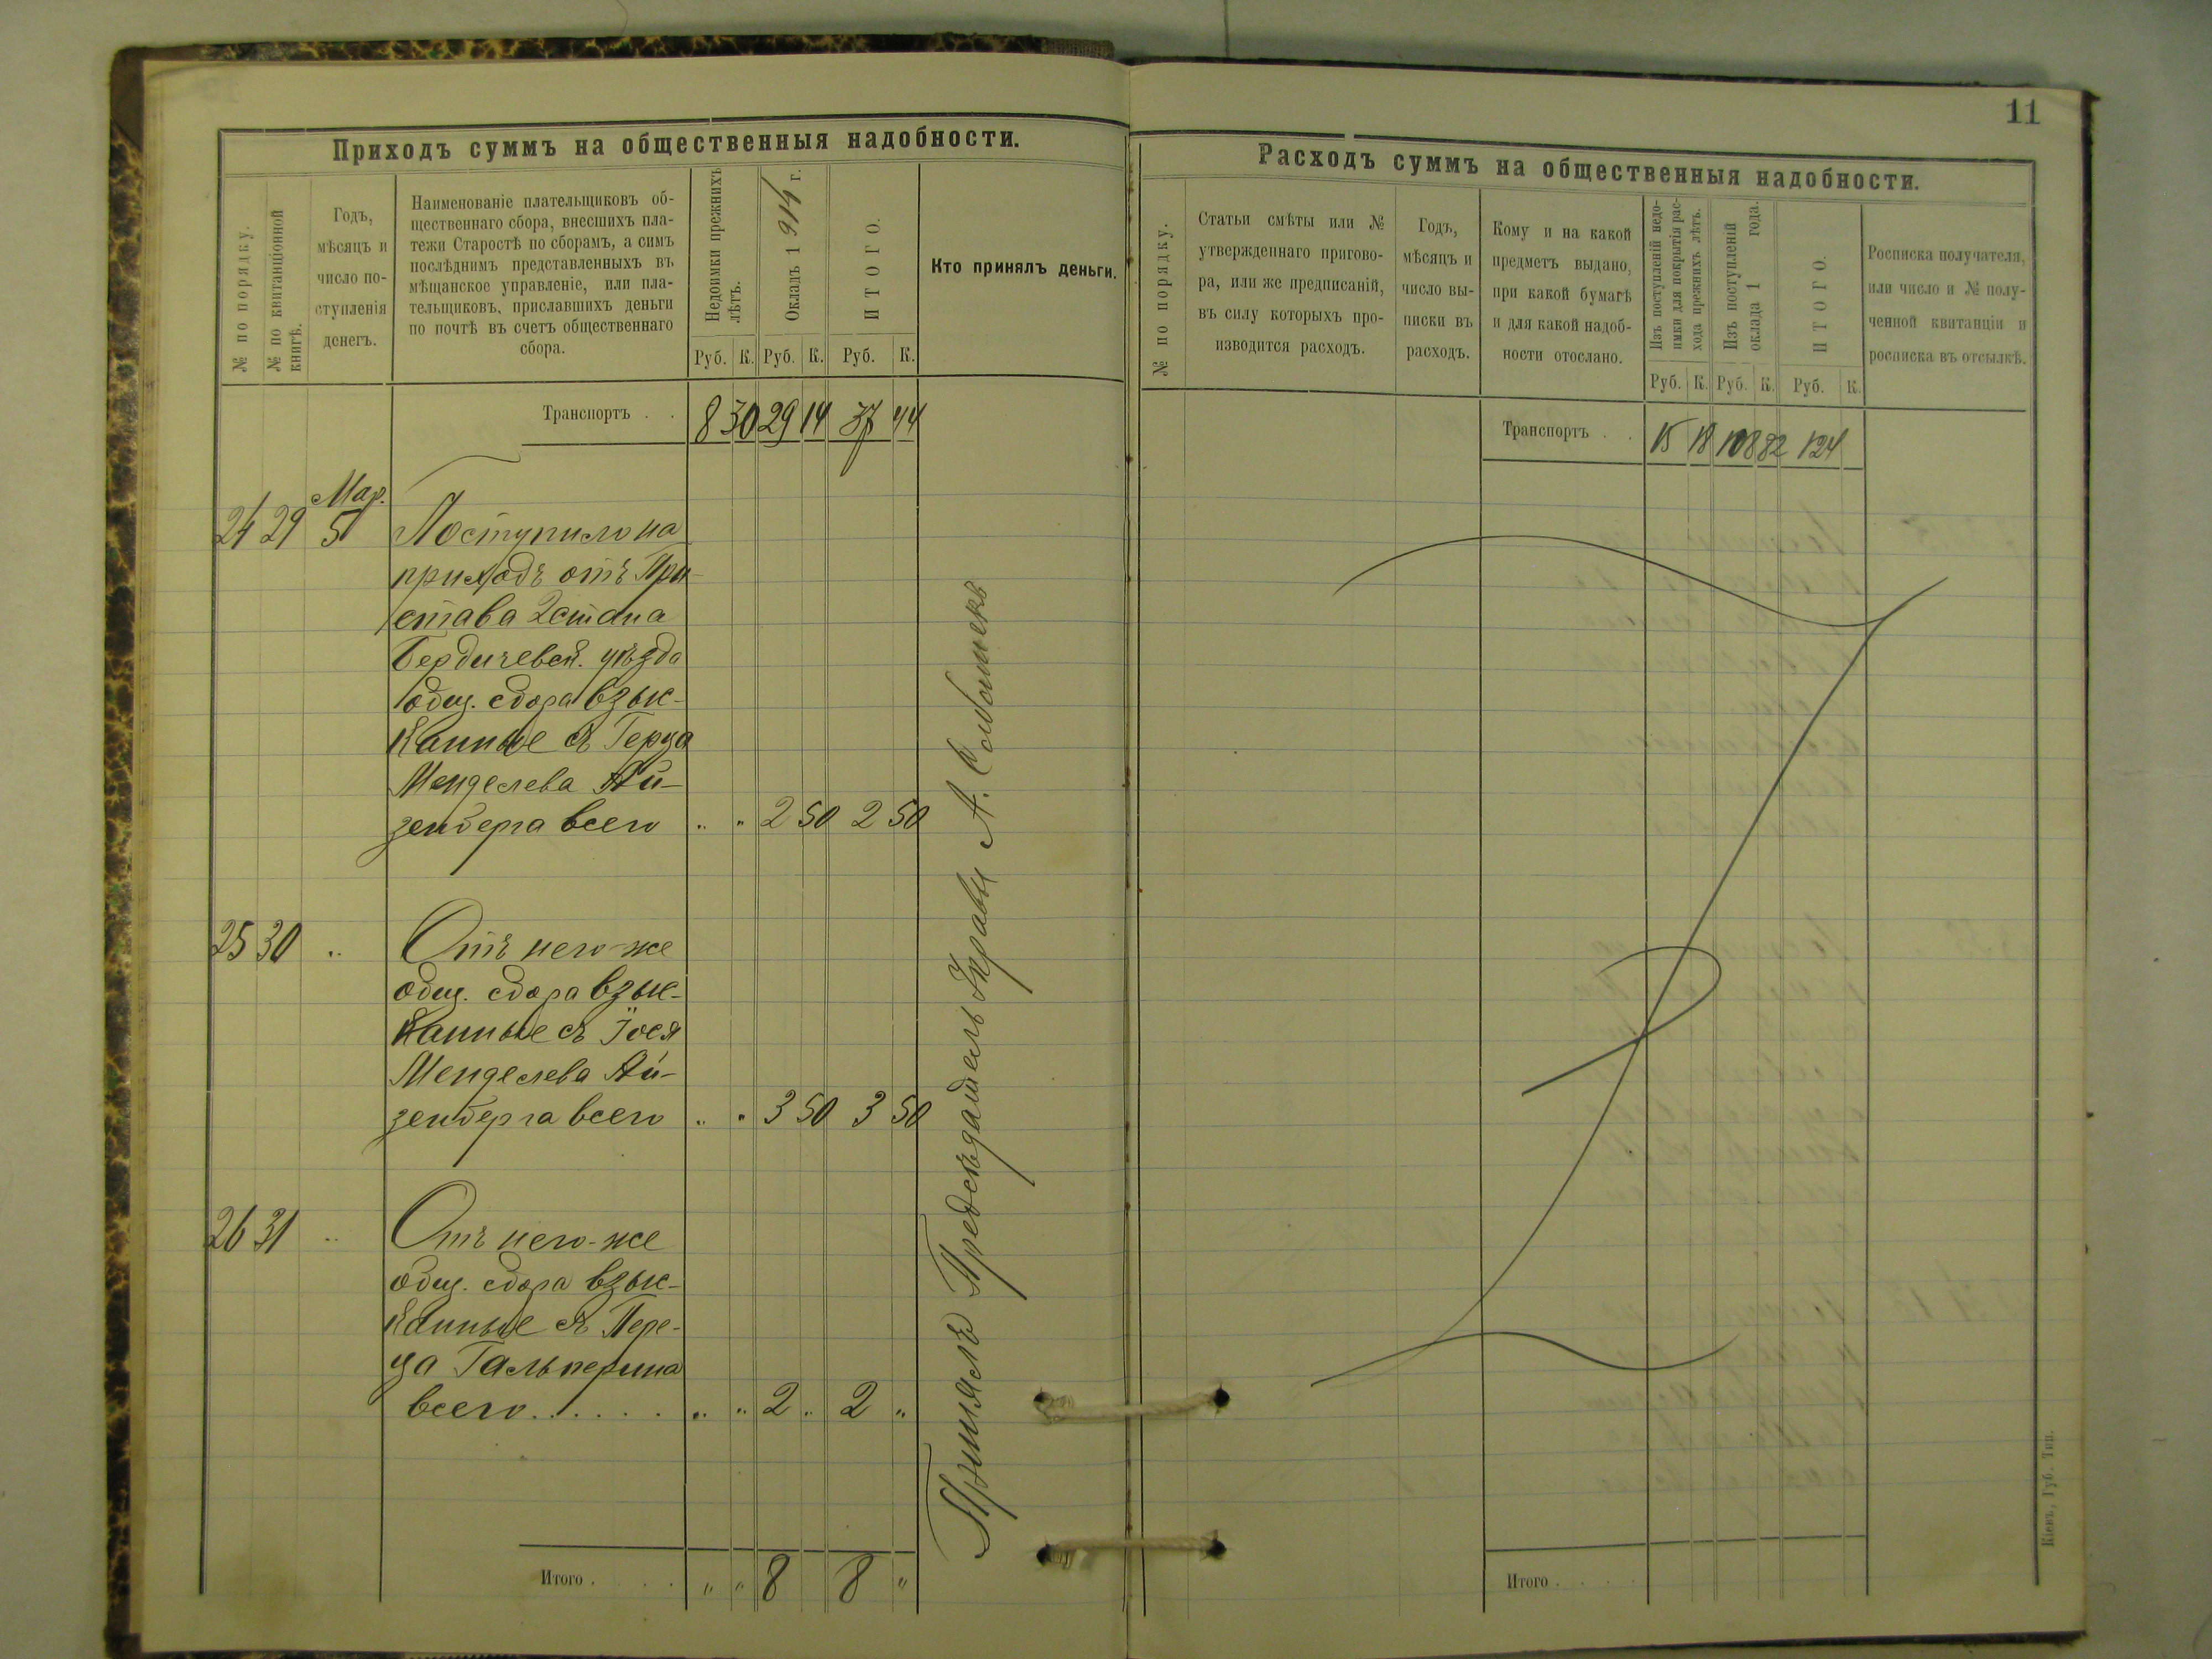 11
Приходъ суммъ на общественныя надобности.
№ по порядку.
№ по квитанціонной
книгѣ.
Годъ,
мѣсяцъ и
число по-
ступленія
денегъ.
Наименованіе плательщиковъ об-
щественнаго сбора, внесшихъ пла-
тежи Старостѣ по сборамъ, а симъ
послѣднимъ представленныхъ въ
мѣщанское управленіе, или пла-
тельщиковъ, приславшихъ деньги
по почтѣ въ счетъ общественнаго
сбора.
Недоимки прежнихъ
лѣтъ.
Окладъ 1914 г.
ИТОГО.
Кто принялъ деньги.
Руб. К. Руб. К. Руб. К.
Транспортъ . . 8 30 29 14 37 44
24 29 Мар.
5 Поступило на
приходъ отъ При-
става 2 стана
Бердичевск. уѣзда
общ. сбора взыс-
канные съ Герца
Менделева Ай-
зенберга всего „ „ 2 50 2 50
25 30 „ Отъ него-же
общ. сбора взыс-
канные съ Іося
Менделева Ай-
зенберга всего „ „ 3 50 3 50
26 31 „ Отъ него-же
общ. сбора взыс-
канные съ Пере-
ца Гальперина
всего . . . . . . „ „ 2 „ 2 „
Итого . . . . „ „ 8 8 „
Принялъ Предсѣдатель Управы А.
Расходъ суммъ на общественныя надобности.
№ по порядку.
Статьи смѣты или №
утвержденнаго пригово-
ра, или же предписаній,
въ силу которыхъ про-
изводится расходъ.
Годъ,
мѣсяцъ и
число вы-
писки въ
расходъ.
Кому и на какой
предметъ выдано,
при какой бумагѣ
и для какой надоб-
ности отослано.
Изъ поступленій недо-
имки для покрытія рас-
хода прежнихъ лѣтъ.
Изъ поступленій
оклада 1 года.
ИТОГО.
Росписка получателя,
или число и № полу-
ченной квитанціи и
росписка въ отсылкѣ.
Руб. К. Руб. К. Руб. К.
Транспортъ . . 15 18 108 82 124
Итого . . . .
Кіевъ, Губ. Тип.